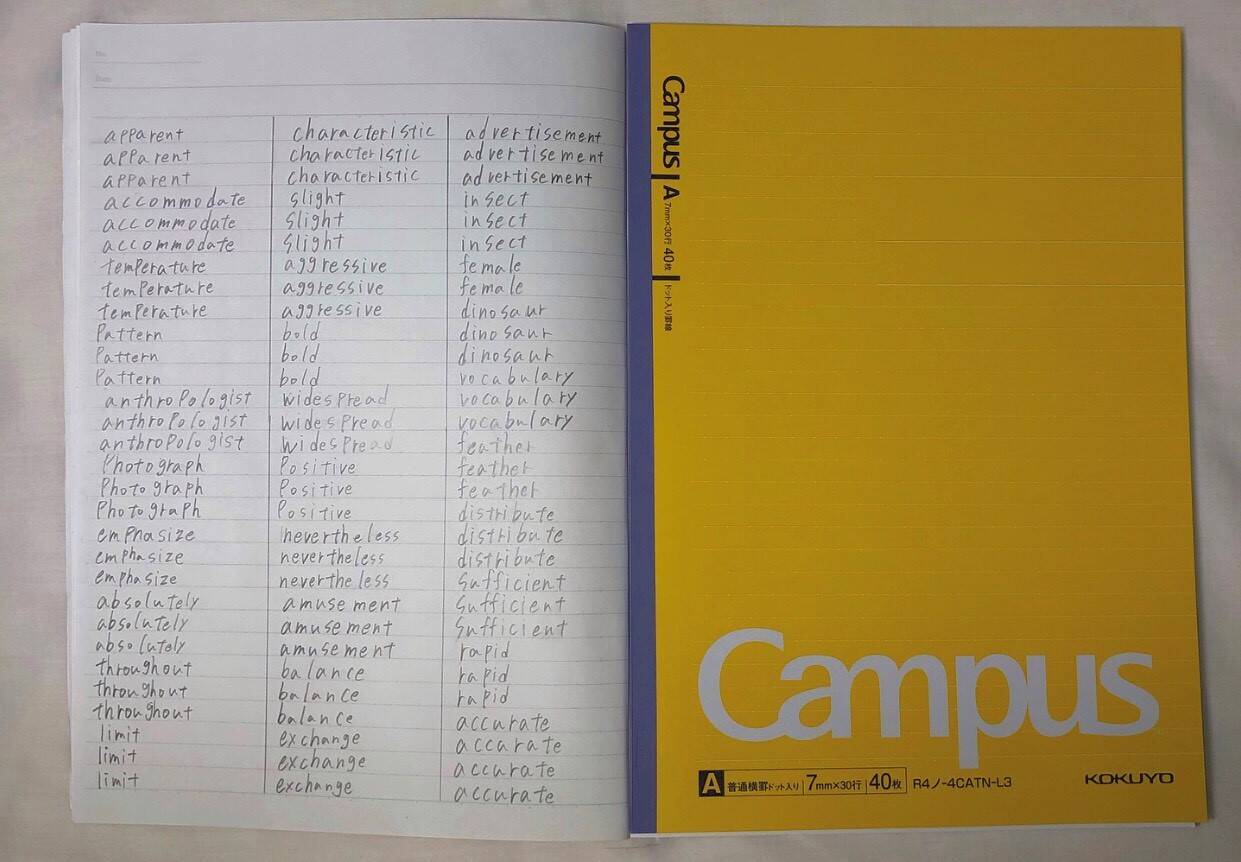 No.
Date
apparent characteristic advertisement
apparent characteristic advertisement
apparent characteristic advertisement
accommodate slight insect
accommodate slight insect
accommodate slight insect
temperature aggressive female
temperature aggressive female
temperature aggressive dinosaur
Pattern bold dinosaur
Pattern bold dinosaur
Pattern bold vocabulary
anthropologist widespread vocabulary
anthropologist widespread vocabulary
anthropologist widespread feather
Photograph Positive feather
Photograph Positive feather
Photograph Positive distribute
emphasize nevertheless distribute
emphasize nevertheless distribute
emphasize nevertheless sufficient
absolutely amusement sufficient
absolutely amusement sufficient
absolutely amusement rapid
throughout balance rapid
throughout balance rapid
throughout balance accurate
limit exchange accarate
limit exchange accurate
limit exchange accurate
Campus A 7mm×30行 40枚 ドット入り罫線
Campus
A 普通横罫ドット入り 7mm×30行 40枚 R4ノ-4CATN-L3
KOKUYO